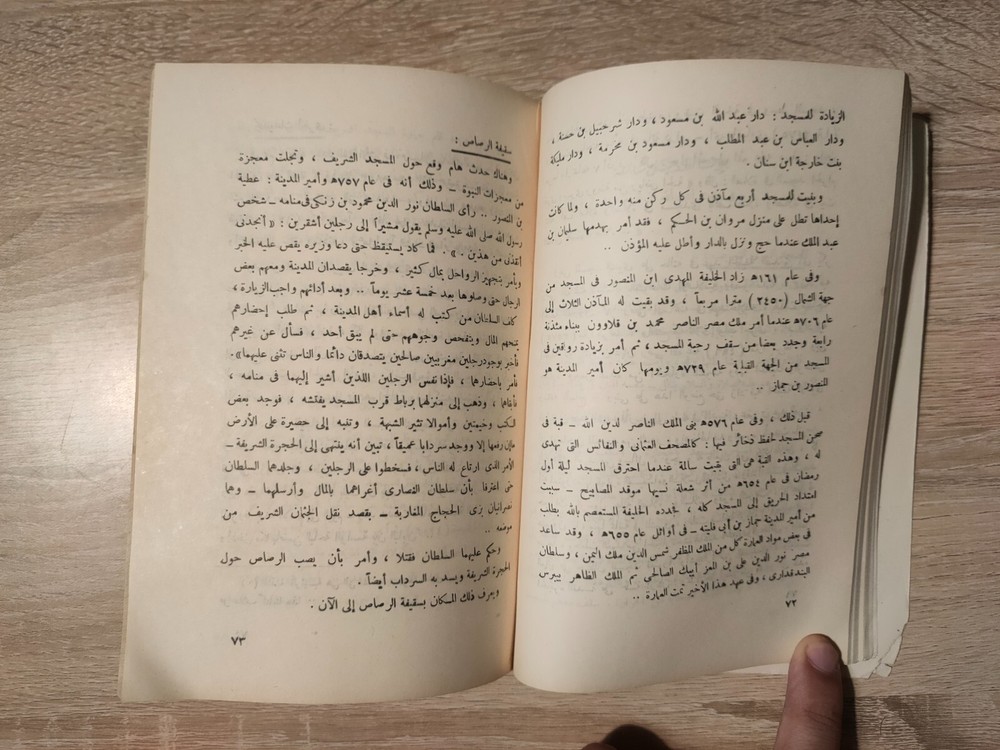 الزيادة للمسجد : دار عبد الله بن مسعود ، ودار شرحبيل بن حسنة ،
ودار العباس بن عبد المطلب ، ودار مسعود بن مخرمة ، ودار مليكة
بنت خارجة ابن سنان .
وبنيت للمسجد أربع مآذن فى كل ركن منه واحدة ، ولما كانت
إحداها تطل على منزل مروان بن الحكم ، فقد أمر بهدمها سليمان بن
عبد الملك عندما حج ونزل بالدار وأطل عليه المؤذن ..
وفى عام ١٦١ه زاد الخليفة المهدى ابن المنصور فى المسجد من
جهة الشمال (٢٤٥٠) مترا مربعاً ، وقد بقيت له المآذن الثلاث إلى
عام ٧٠٦ه عندما أمر ملك مصر الناصر محمد بن قلاوون ببناء مئذنة
رابعة وجدد بعضا من سقف رحبة المسجد ، ثم أمر بزيادة رواقين فى
المسجد من الجهة القبلية عام ٧٢٩ه ويومها كان أمير المدينة هو
المنصور بن جماز ..
قبل ذلك ، وفى عام ٥٧٦ه بنى الملك الناصر لدين الله ــ قبة فى
صحن المسجد لحفظ ذخائر فيها : كالمصحف العثمانى والنفائس التى تهدى
له ، وهذه القبة هى التى بقيت سالمة عندما احترق المسجد ليلة أول
رمضان فى عام ٦٥٤ه من أثر شعلة نسيها موقد المصابيح ــ سببت
امتداد الحريق إلى المسجد كله ، فجدده الخليفة المستعصم بالله بطلب
من أمير المدينة جماز بن أبى فليتة ــ فى أوائل عام ٦٥٥ه ، وقد ساعد
فى بعض مواد العمارة كل من الملك المظفر شمس الدين ملك اليمن ، وسلطان
مصر نور الدين على بن المعز أيبك الصالحى ثم الملك الظاهر بيبرس
البندقدارى ، وفى عهد هذا الأخير تمت العمارة ..
٧٢
سقيفة الرصاص :
وهناك حدث هام وقع حول المسجد الشريف ، وتجلت معجزة
من معجزات النبوة ــ وذلك أنه فى عام ٧٥٧ه وأمير المدينة : عطية
بن المنصور .. رأى السلطان نور الدين محمود بن زنكى فى منامه ــ شخص
رسول الله صلى الله عليه وسلم يقول مشيراً إلى رجلين أشقرين : « أنجدنى
أنقذنى من هذين . » . فما كاد يستيقظ حتى دعا وزيره يقص عليه الخبر
ويأمر بتجهيز الرواحل بمال كثير ، وخرجا يقصدان المدينة ومعهم بعض
الرجال حتى وصلوها بعد خمسة عشر يوماً .. وبعد أدائهم واجب الزيارة ،
كلف السلطان من كتب له أسماء أهل المدينة ، ثم طلب إحضارهم
يمنحهم المال ويتفحص وجوههم حتى لم يبق أحد ، فسأل عن غيرهم
فأخبر بوجود رجلين مغربيين صالحين يتصدقان دائما والناس تثنى عليهما».
فأمر باحضارهما ، فإذا نفس الرجلين اللذين أشير إليهما فى منامه ،
فأبقاهما ، وذهب إلى منزلهما برباط قرب المسجد يفتشه ، فوجد بعض
الكتب وخيمتين وأموالا تثير الشبهة ، وتنبه إلى حصيرة على الأرض
ما إن رفعها إلا ووجد سردابا عميقاً ، تبين أنه ينتهى إلى الحجرة الشريفة ــ
الأمر الذى ارتاع له الناس ، فسخطوا على الرجلين ، وجلدهما السلطان
حتى اعترفا بأن سلطان النصارى أغراهما بالمال وأرسلهما ــ وهما
نصرانيان بزى الحجاج المغاربة ــ بقصد نقل الجثمان الشريف من
موضعه ..
وحكم عليهما السلطان فقتلا ، وأمر بأن يصب الرصاص حول
الحجرة الشريفة ويسد به السرداب أيضاً .
ويعرف ذلك المكان بسقيفة الرصاص إلى الآن .
٧٣